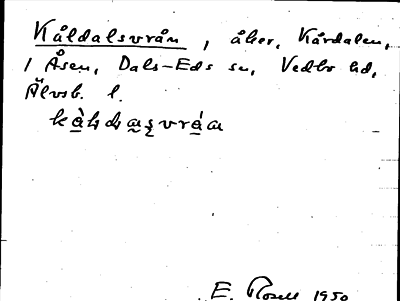 Kåldalsvrån, åker, Kårdalen,
1 Åsen, Dals-Eds sn, Vedbo hd,
Älvsb. l.
E. Rosell 1950